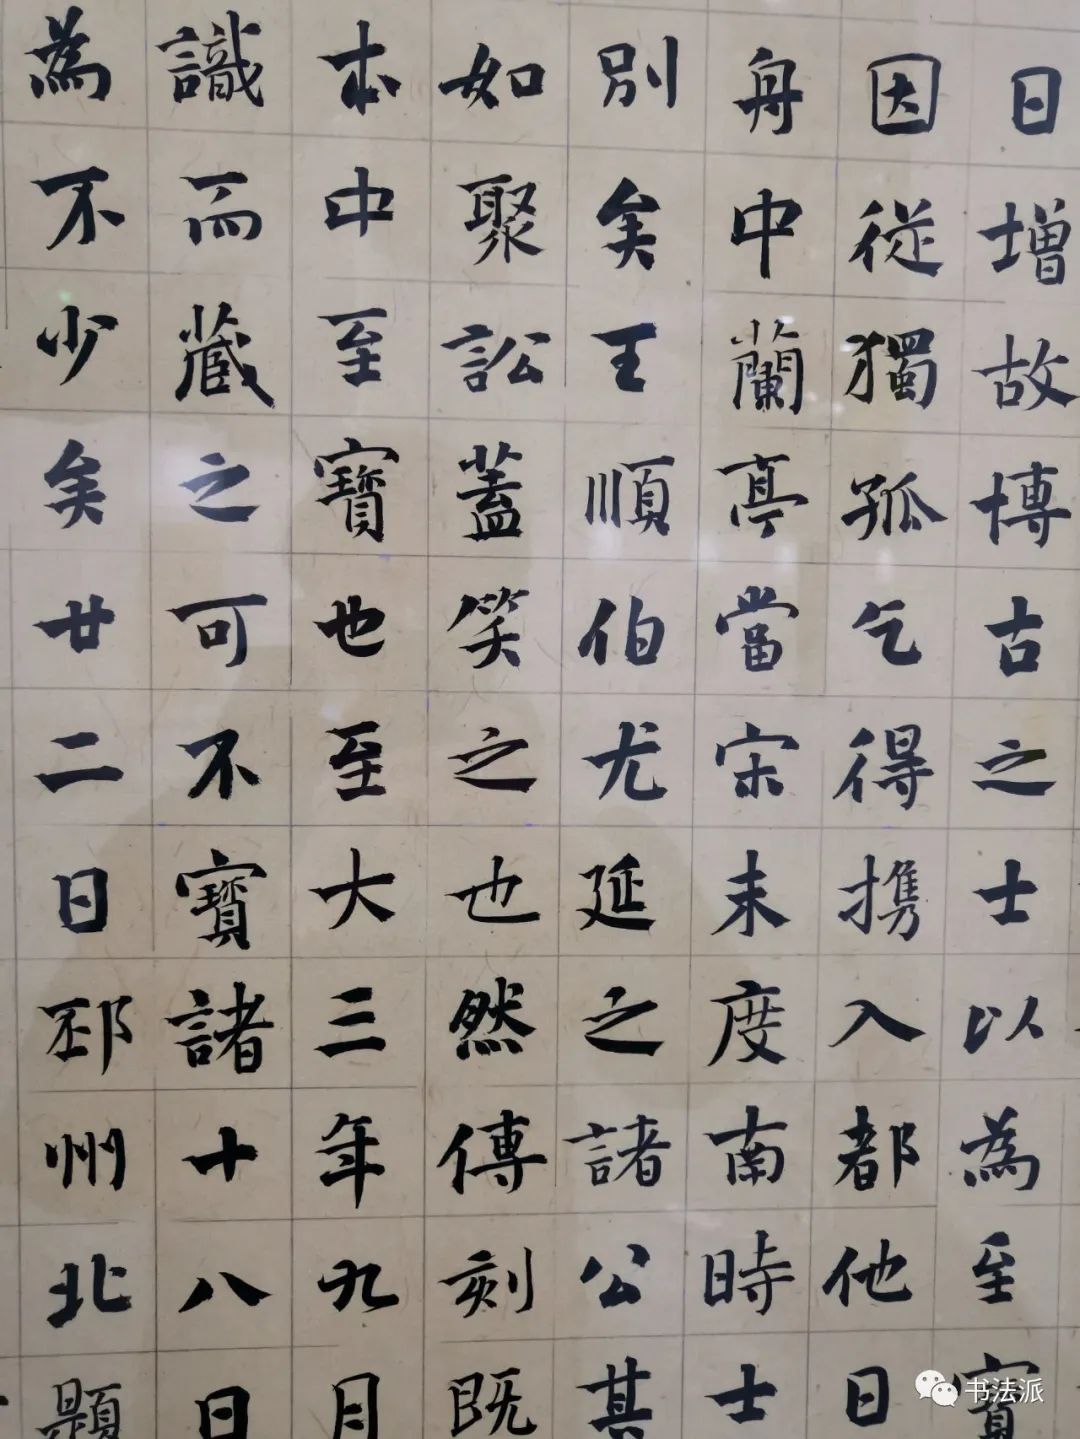 日增故博古之士以為至寶
因從獨孤乞得携入都他日
舟中蘭亭當宋末度南時士
別矣王順伯尤延之諸公其
如聚訟蓋笑之也然傳刻既
本中至寶也至大三年九月
識而藏之可不寶諸十八日
為不少矣廿二日邳州北題
书法派